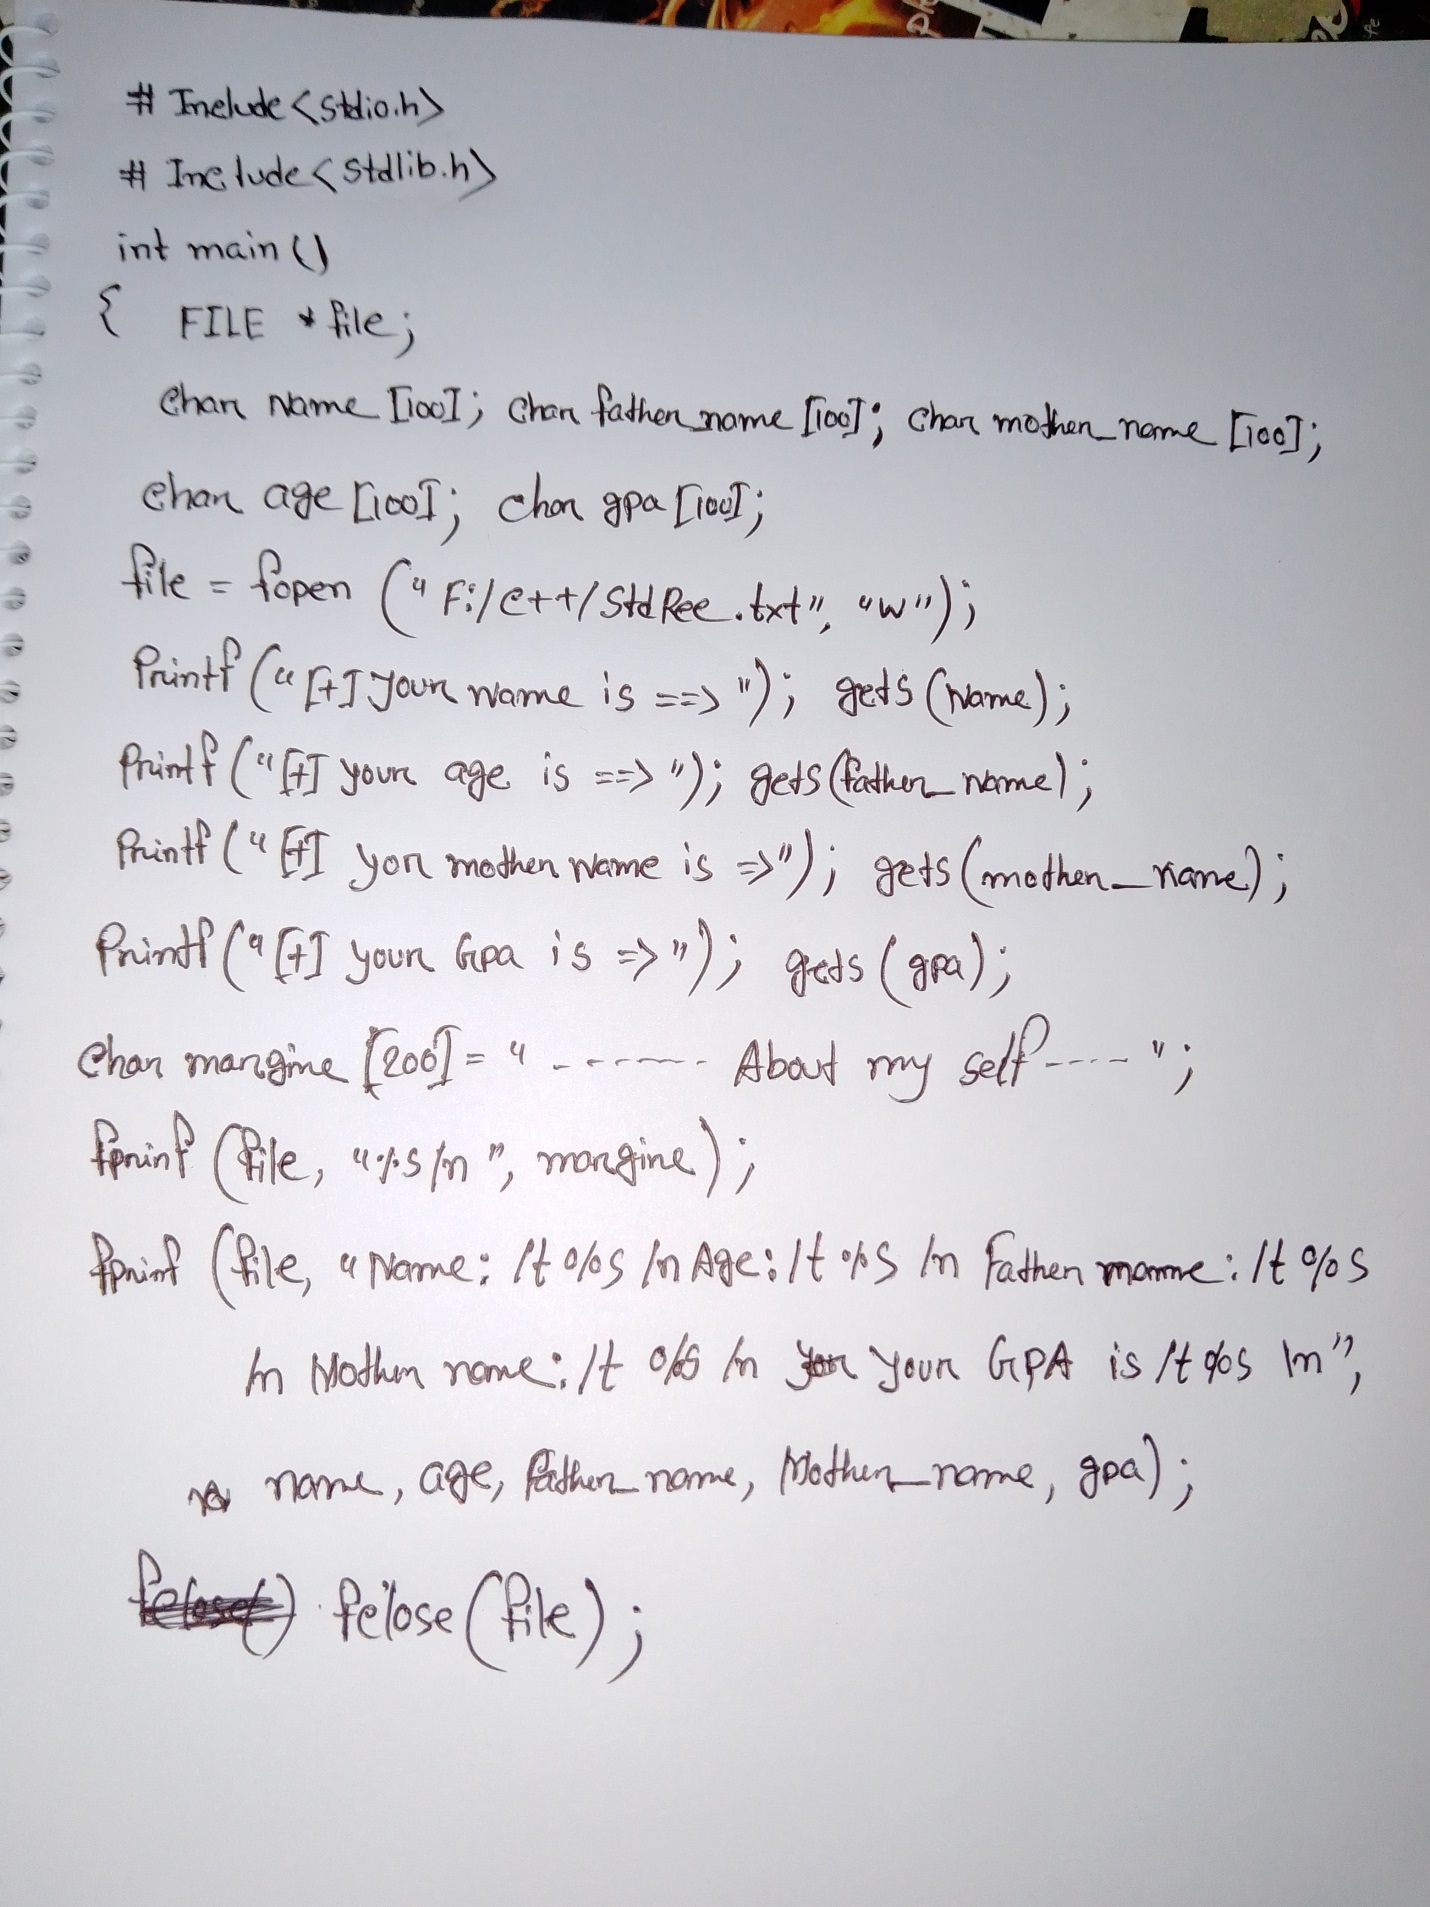 # Include <stdio.h>
# Include <stdlib.h>
int main ()
{ FILE * file;
Char Name [100]; Char father_name [100]; Char mother_name [100];
Char age [100]; char gpa [100];
file = fopen ("F:/C++/StdRec.txt", "w");
Printf ("[+] your name is ==> "); gets (Name);
Printf ("[+] your age is ==> "); gets (father_name);
Printf ("[+] yor mother name is =>"); gets (mother_name);
Printf ("[+] your Gpa is => "); gets (gpa);
Char margine [200] = " ------- About my self ---- ";
fprinf (file, "%s /n ", margine);
fprinf (file, "Name: /t %s /n Age: /t %s /n Father mamme: /t %s
/n Mother name: /t %s /n your GPA is /t %s /n",
name, age, father_name, Mother_name, gpa);
fclose (file);